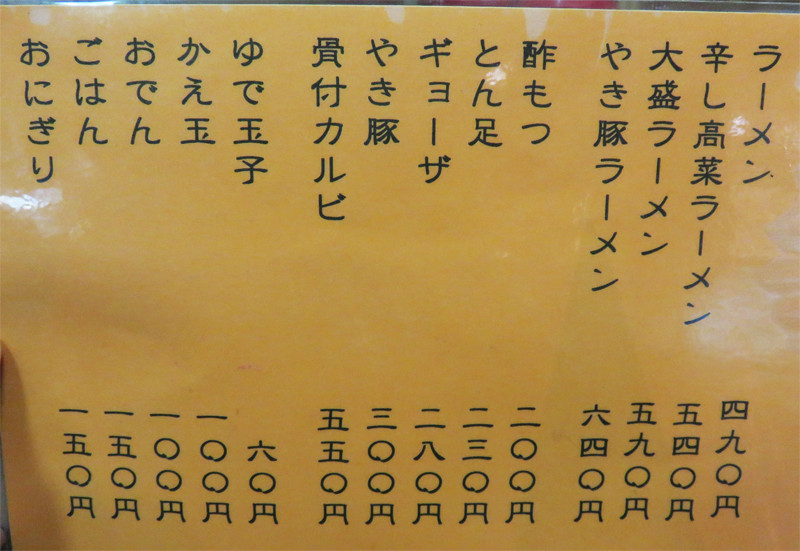 ラーメン 四九〇円
辛し高菜ラーメン 五四〇円
大盛ラーメン 五九〇円
やき豚ラーメン 六四〇円
酢もつ 二〇〇円
とん足 二三〇円
ギョーザ 二八〇円
やき豚 三〇〇円
骨付カルビ 五五〇円
ゆで玉子 六〇円
かえ玉 一〇〇円
おでん 一〇〇円
ごはん 一五〇円
おにぎり 一五〇円